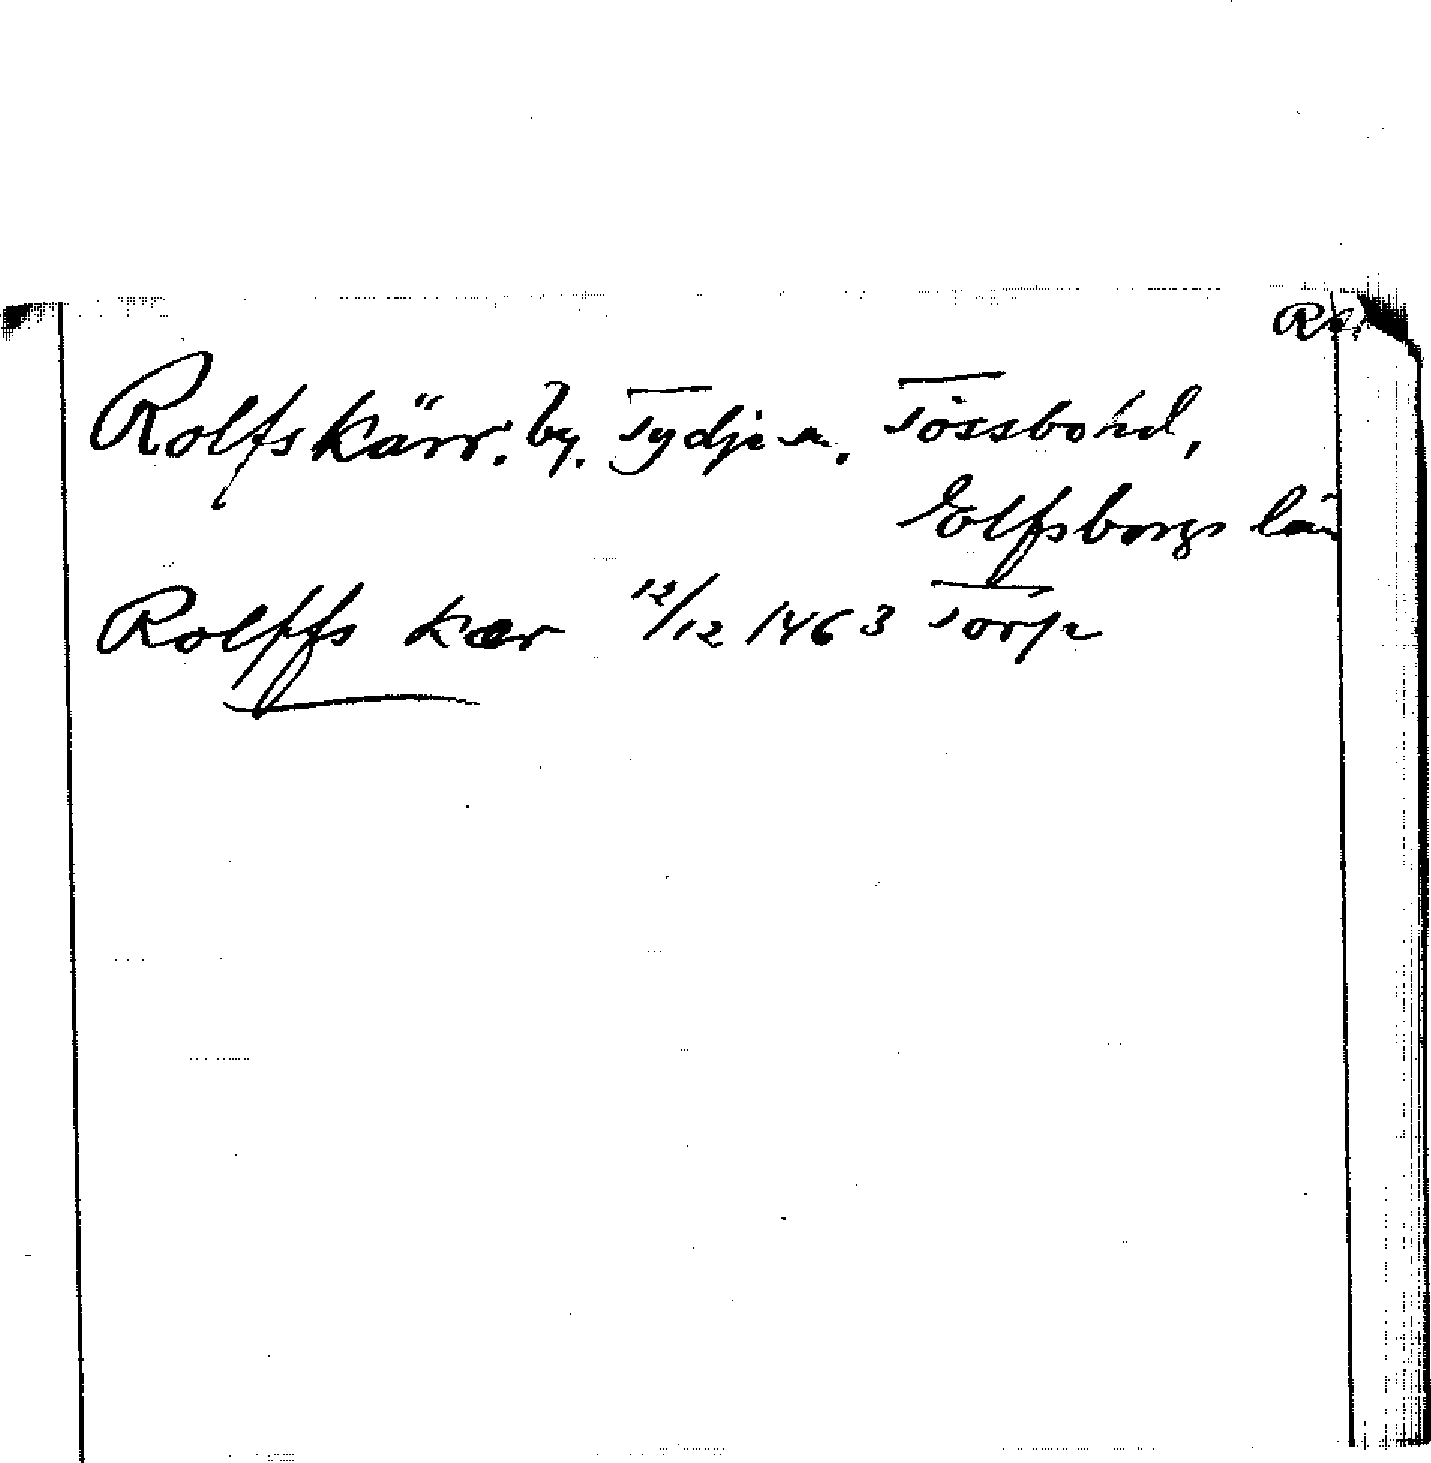 Rolfskärr. by. Tydje sn. Tössbo hd,
Elfsborgs län
Rolffs kær 12/12 1463 Torp